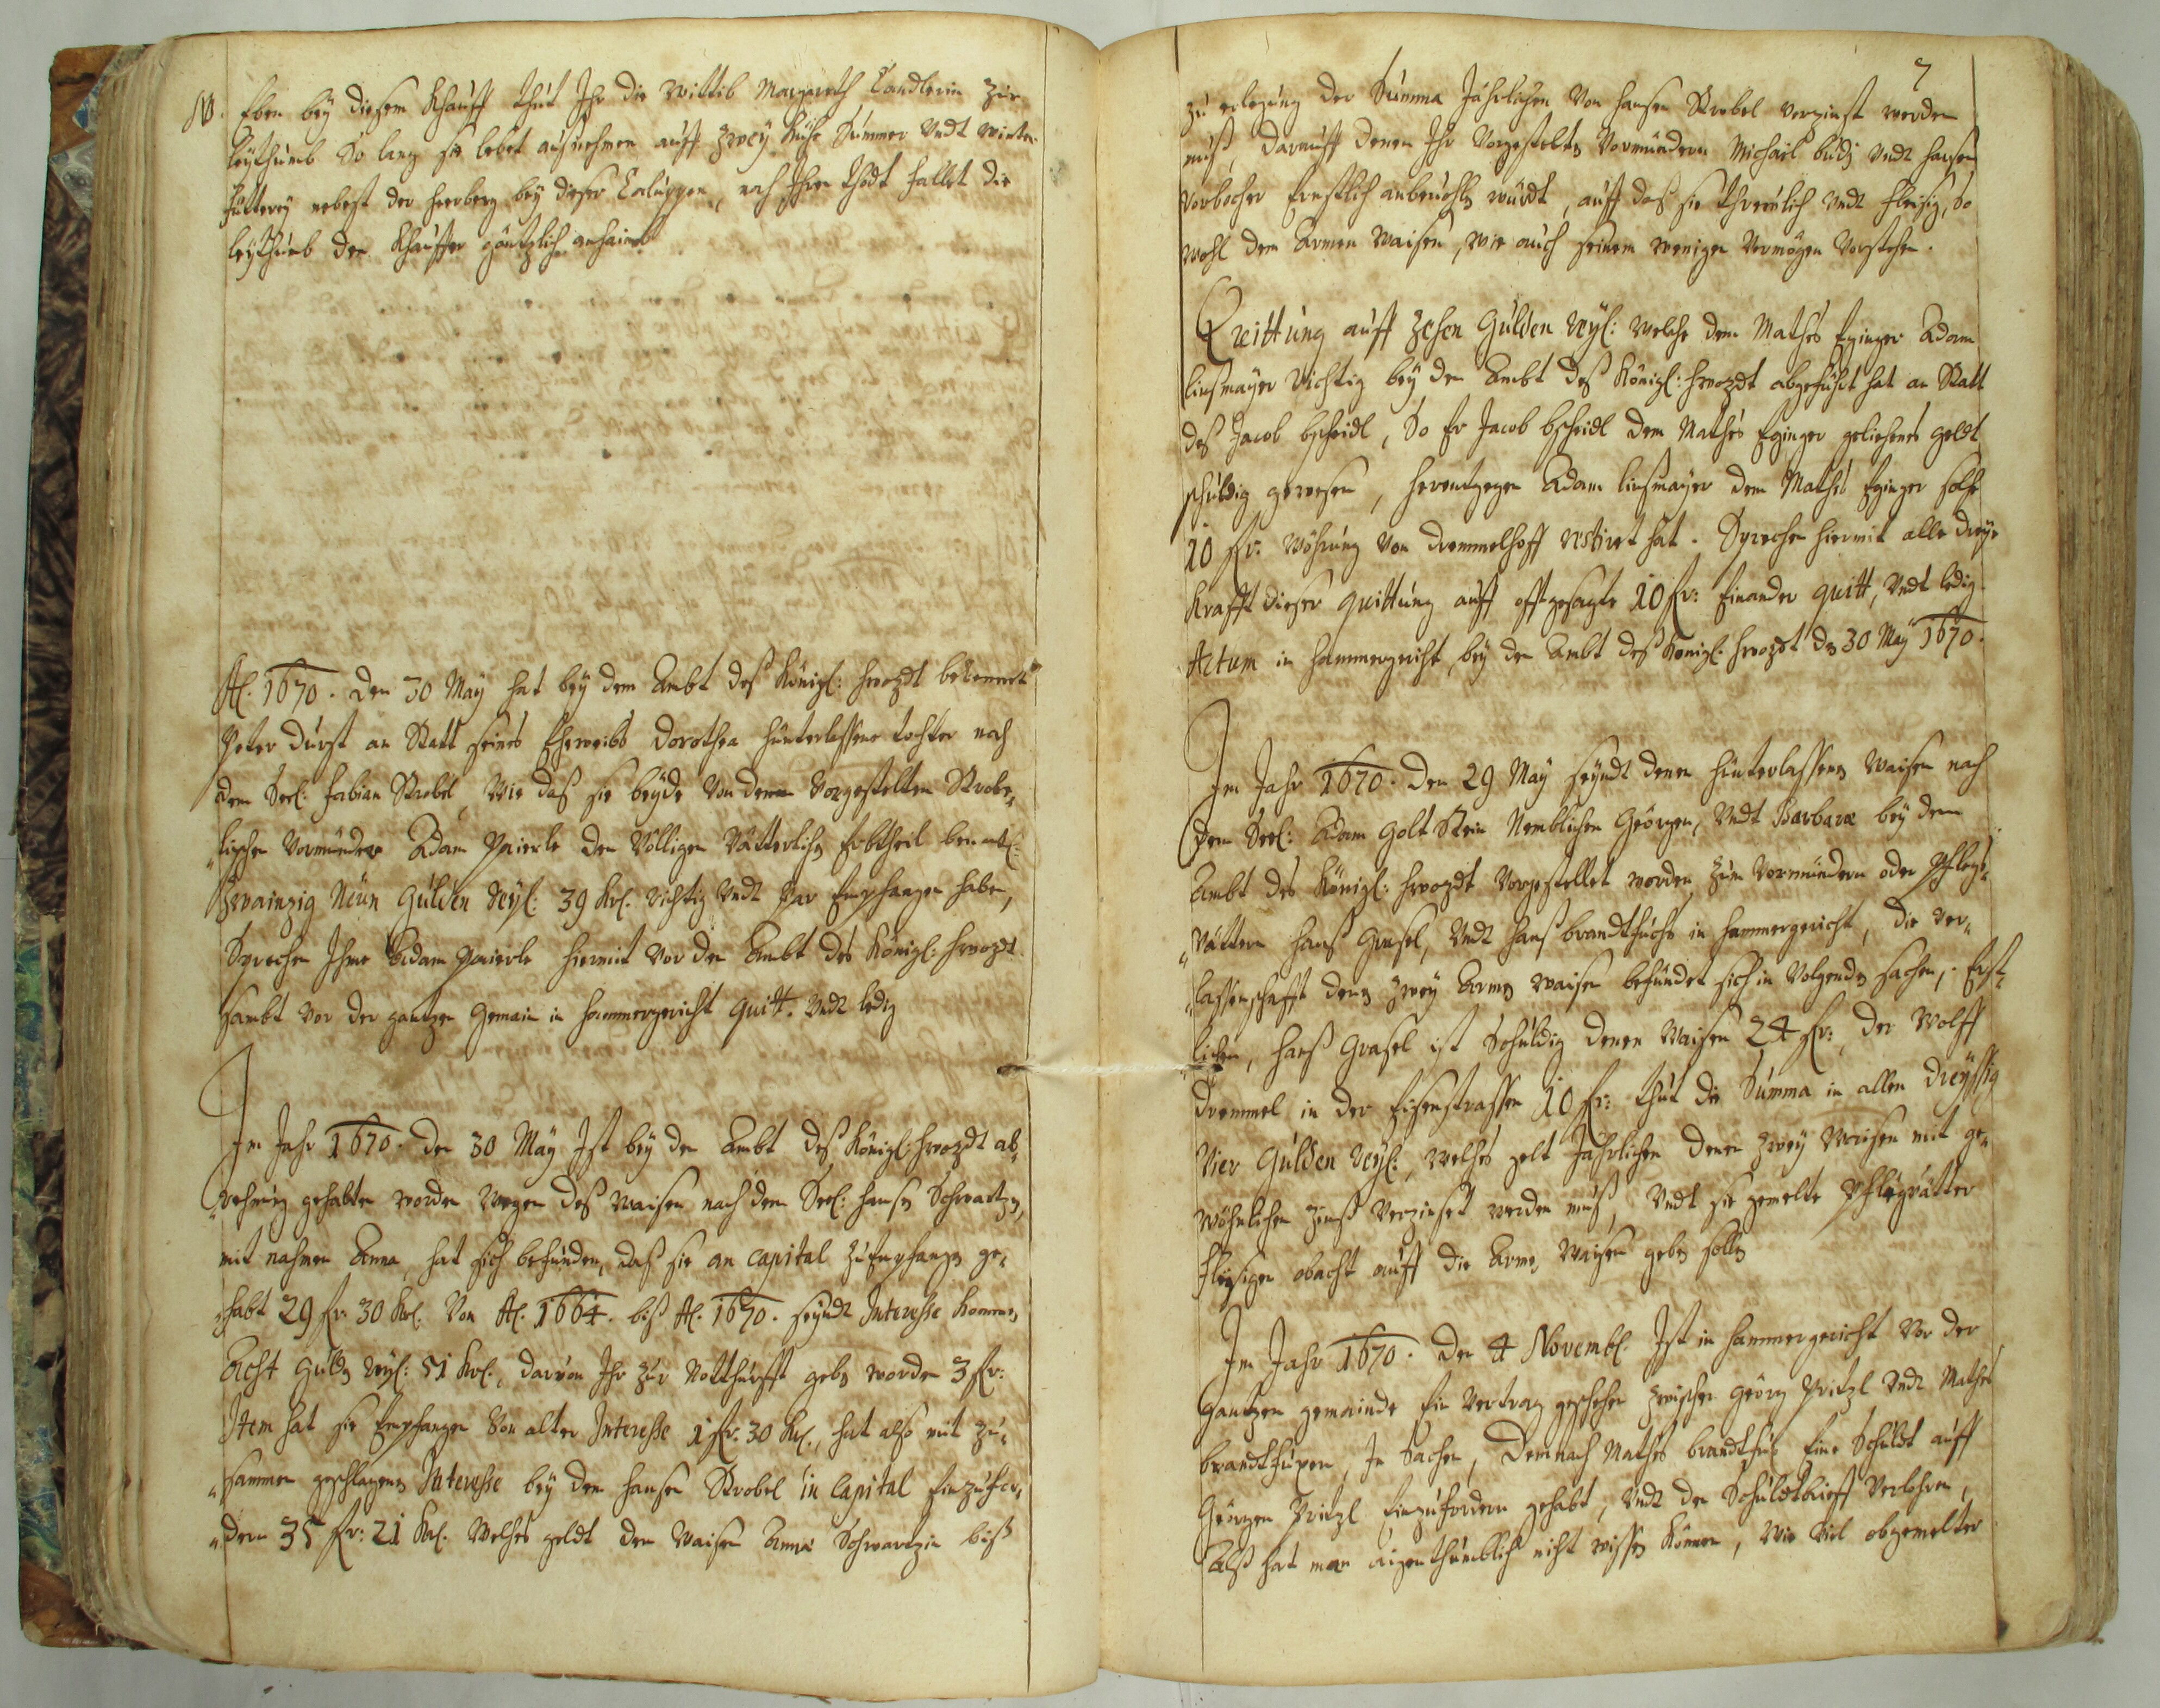 NB. Eben bey diesem Khauff thut Ihr die Wittib Margareth Candlerin zur
leÿthumb So lang sie lebet ausnehmen auff zweÿ Kühe Summer Vndt Winter
fütterÿ nebest der Herberg beÿ dieser Caluppen, nach Ihren Thodt fallet die
leÿthumb den Khauffer gäntzlich anhaimb
Ao. 1670. Den 30 Maÿ hat beÿ dem Ambt deß Königl: hwozdt bekennet
Peter Durst an Statt seines Eheweibs Dorothea hünterlassene tochter nach
dem Seel: Fabian Strobel, Wie daß sie beÿde Von denen Vorgestelten Strobe„
„lischen Vormünder Adam Paierle den Völligen Vätterlichen Erbtheil
Zwainzig Neün Gulden Reÿl: 39 Krl. richtig Vndt Par Empfangen haben,
Sprechen Ihme Adam Paierle hiermit Vor den Ambt des Königl: hwozdt
sambt Vor der gantzen Gemain in hammergericht quitt. Vndt ledig
Im Jahr 1670. Den 30 Maÿ Ist beÿ den Ambt deß Königl: hwozdt ab„
„rehnung gehalten worden Wegen deß Waisen nach dem Seel: hansen Schwartzen,
mit nahmen Anna, hat sich befunden, daß sie an capital zu Empfangen ge„
„habt 29 fr: 30 Krl. Von Ao. 1664. biß Ao. 1670. seÿndt Interesse kommen
Acht Gulden Reÿl: 51 Krl., darvon Ihr zur Notthurfft geben worden 3 fr:
Item hat sie Empfangen Von alter Interesse 1 fr: 30 Krl., hat also mit zu„
„sammen geschlagenen Interesse beÿ dem hansen Strobel in Capital Einzufor„
„dern 35 fr: 21 Krl. Welches geldt dem Waisen Anna Schwartzin biß
7
zu erlegung der Summa Jährlichen Von hansen Strobel Verzinst werden
muß, darauff denen Ihr Vorgestelten Vormündern Michael Vndt hansen
Vorbocher Ernstlich anbevohlen wurdt, auff daß sie threulich Vndt fleisig, So
wohl dem Armen Waisen, Wie auch seinem wenigen Vermögen Vorstehen.
Quittung auff Zehen Gulden Reÿl: Welche dem Mathes Eginger Adam
linsmaÿer Richtig beÿ den Ambt deß Königl: hwozdt abgeführt hat an Statt
deß Jacob bscheidl, So Er Jacob bscheidl dem Mathes Eginger geliehenes geldt
schuldig gewesen, herentgegen Adam linsmaÿer dem Mathes Eginger solche
10 fr: Wöhrung Von Dremmelhoff restiret hat. Sprechen hiermit alle dreÿe
Krafft dieser quittung auff offtgesagte 10 fr: Einander quitt, Vndt ledig.
Actum in hammergericht, beÿ den Ambt deß Königl: hwozdt den 30 Maÿ 1670.
Im Jahr 1670. Den 29 Maÿ seÿndt denen hünterlassenen Waisen nach
dem Seel: Adam Golt Stein Nemblichen Geörgen, Vndt Barbara beÿ dem
Ambt des Königl: hwozdt Vorgestellet worden zum Vormündern oder Pflege„
„Vättern hanß Grasel, Vndt hanß brandthuchs in hammergericht, die Ver„
„lassenschafft deren zweÿ Armen Waisen befündet sich in Volgenden sachen,. Erst„
„lichen, hanß Grasel ist Schuldig denen Waisen 24 fr:, der Wolff
Dremmel in der Eÿsenstrassen 10 fr: thut die Summa in allen Dreÿssig
Vier Gulden Reÿl:, welches gelt Jährlichen denen zweÿ Waisen mit ge„
wöhnlichen Zinß Verzinset werden muß, Vndt sie gemelte Pflegvätter
fleÿsigen obacht auff die Armen Waisen geben sollen
Im Jahr 1670. Den 4 Novembl. Ist in hammergericht Vor der
gantzen gemainde Ein Vertrag geschehen zwischen Geörg Pritzl Vndt Mathes
brandthuxen, In Sachen, Demnach Mathes brandthux Eine Schuldt auff
Geörgen Pritzl Einzufordern gehabt, Vndt den Schuldtbrieff Verlohren,
Alß hat man aigenthumblich nicht wissen können, Wie Viel obgemelter